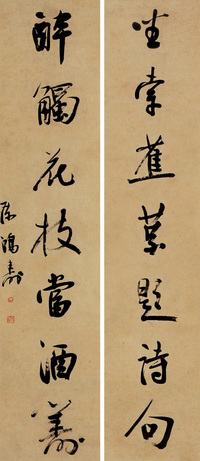 坐牽蕉葉題詩句
醉觸花枝當酒籌
陳鴻壽